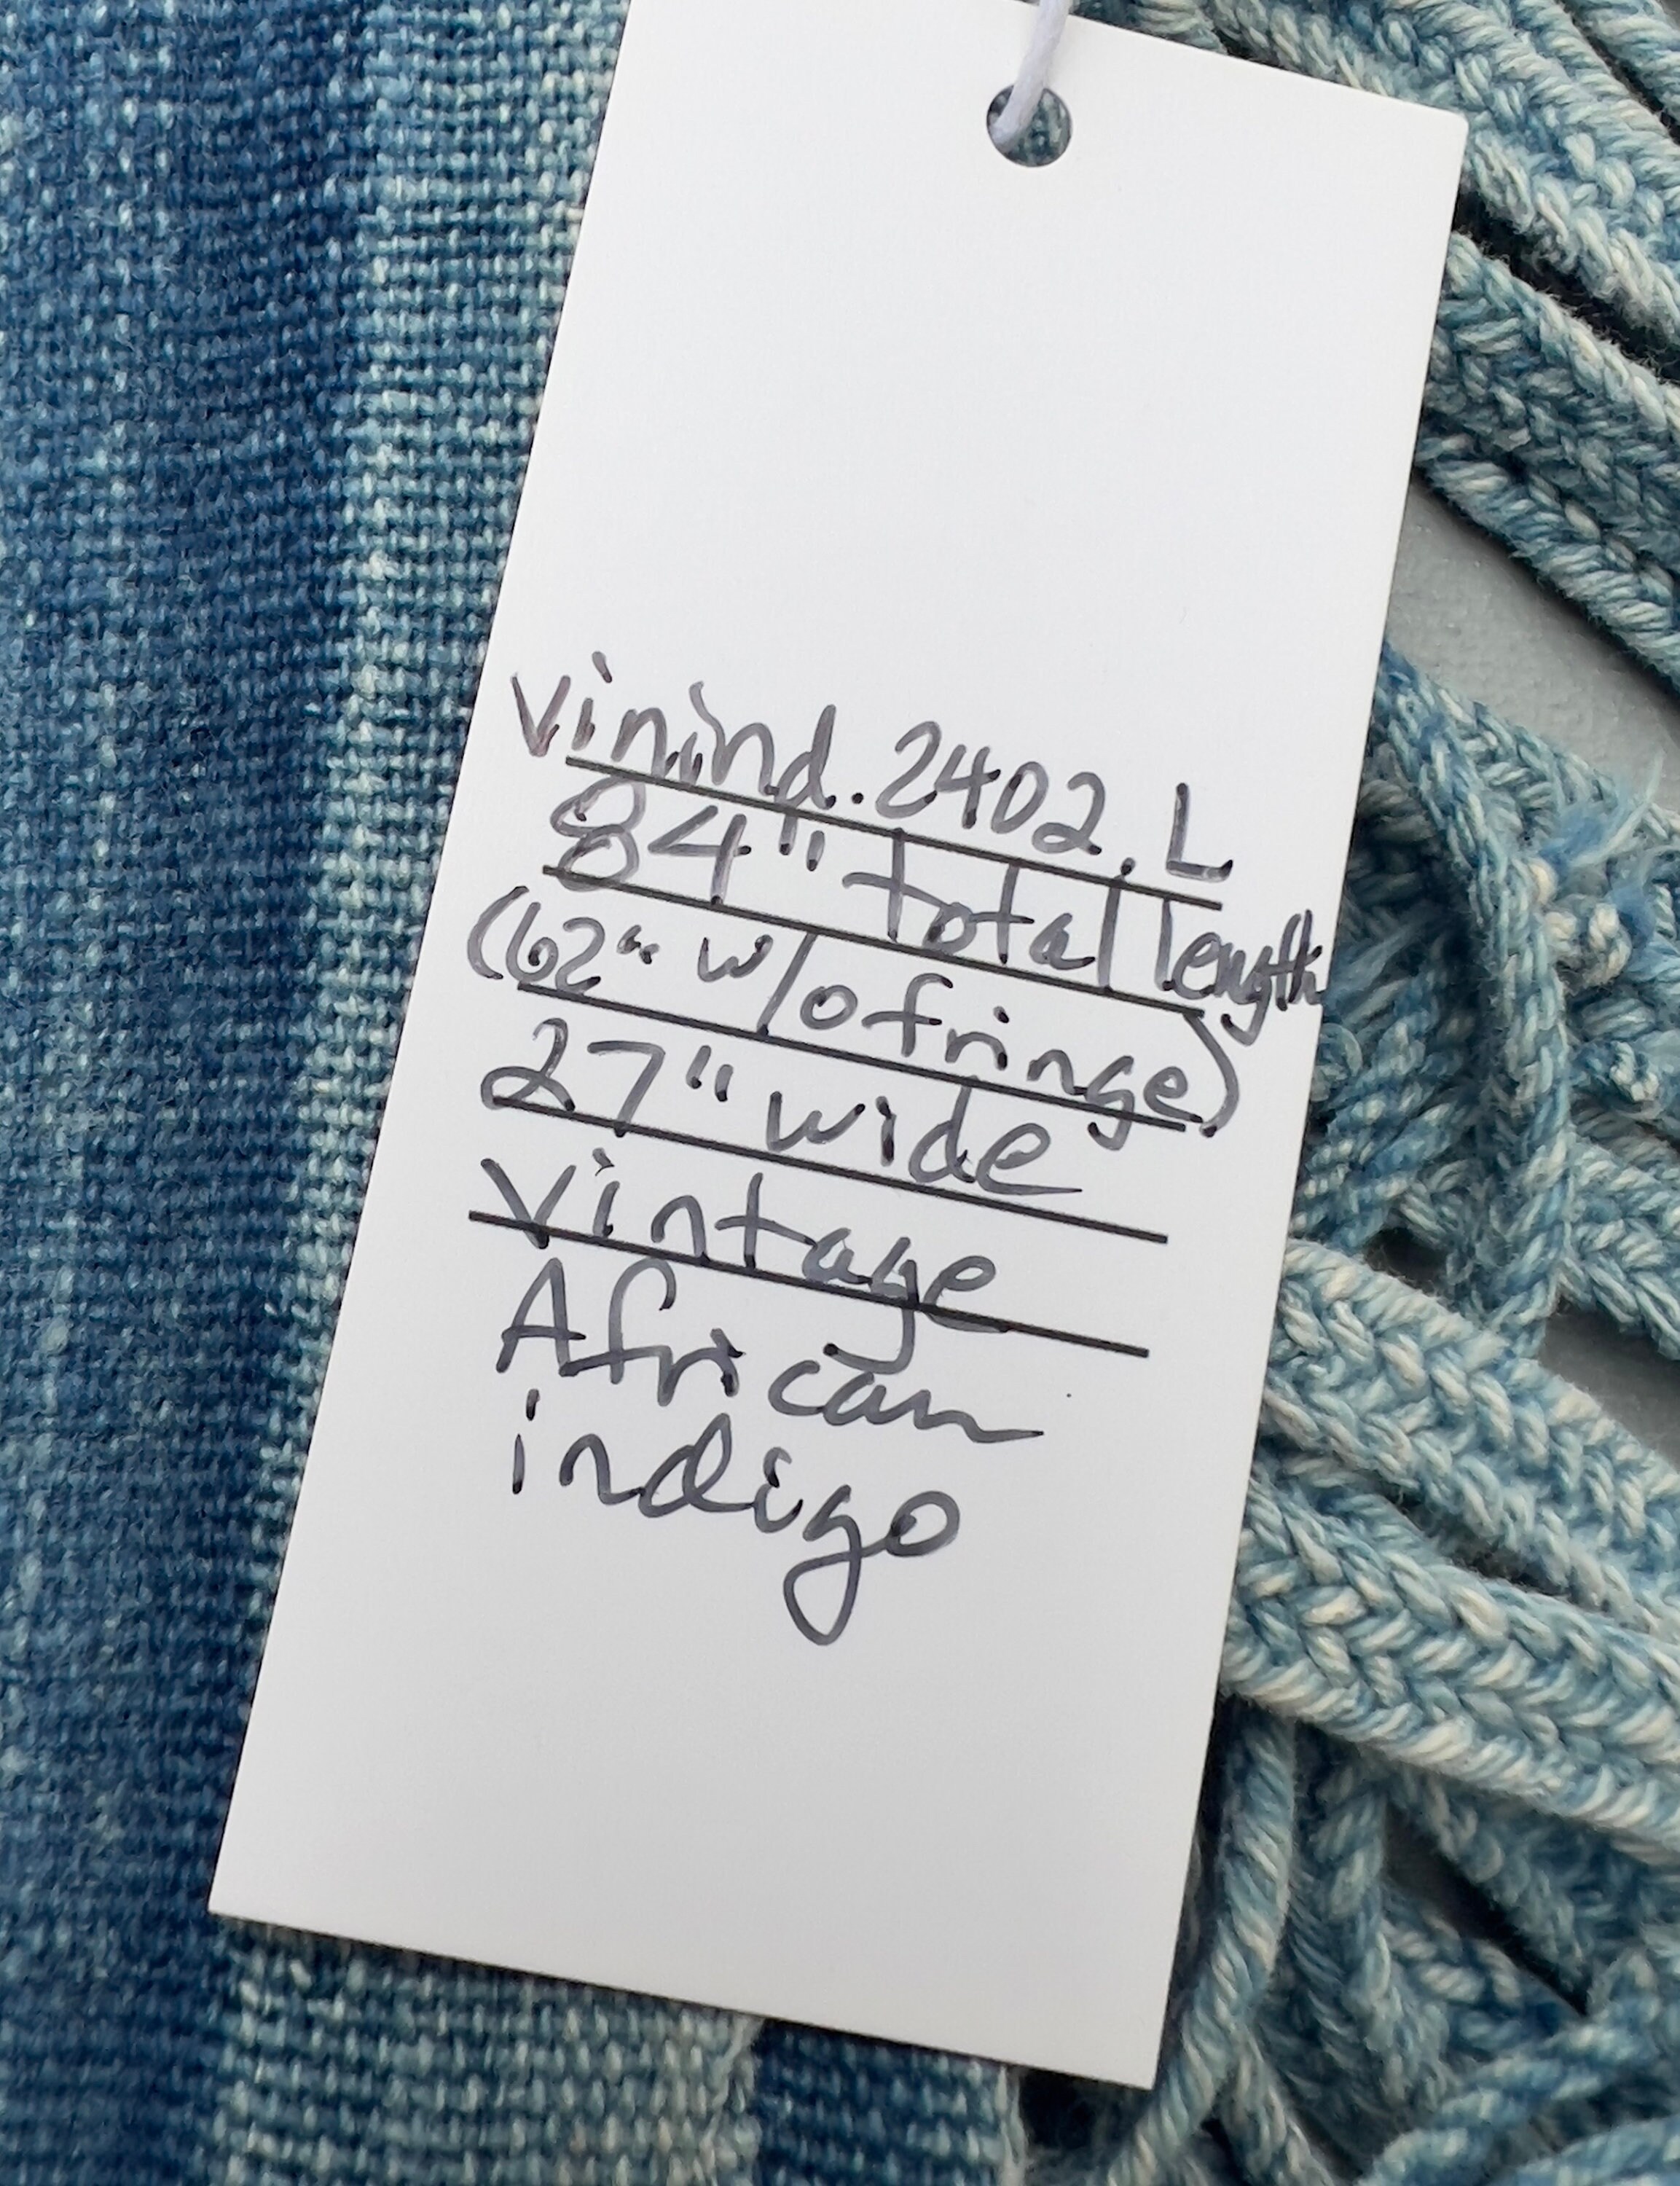 Vinind.2402.L
84" total length
(62" w/o fringe)
27" wide
Vintage
African
indigo